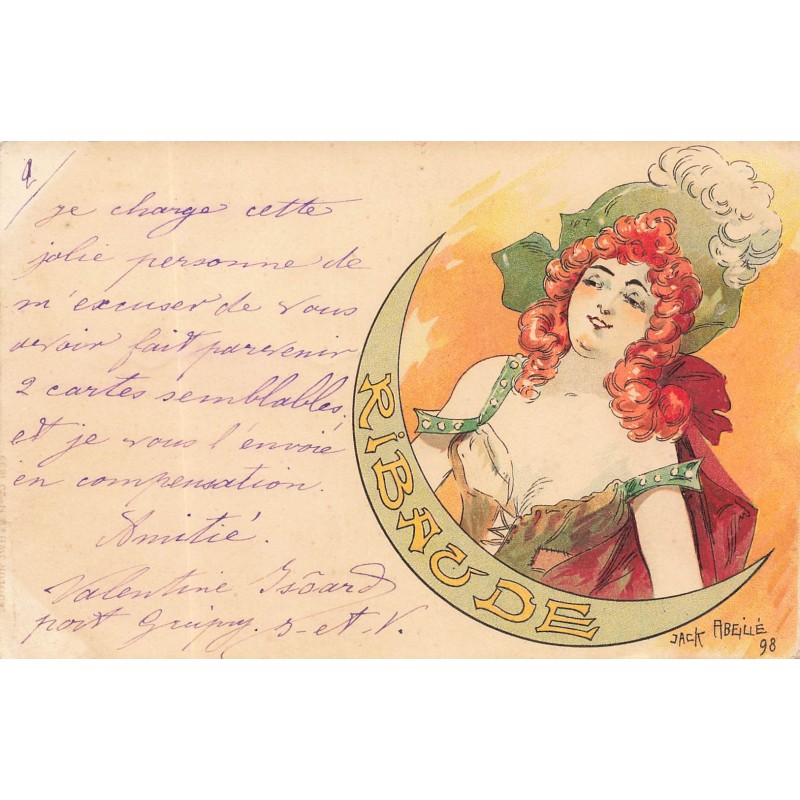 je charge cette
jolie personne de
m'excuser de vous
avoir fait parvenir
2 cartes semblables,
et je vous l'envoie
en compensation.
Amitié.
Valentine Isoard
port
RIBAUDE
JACK ABEILLÉ
98